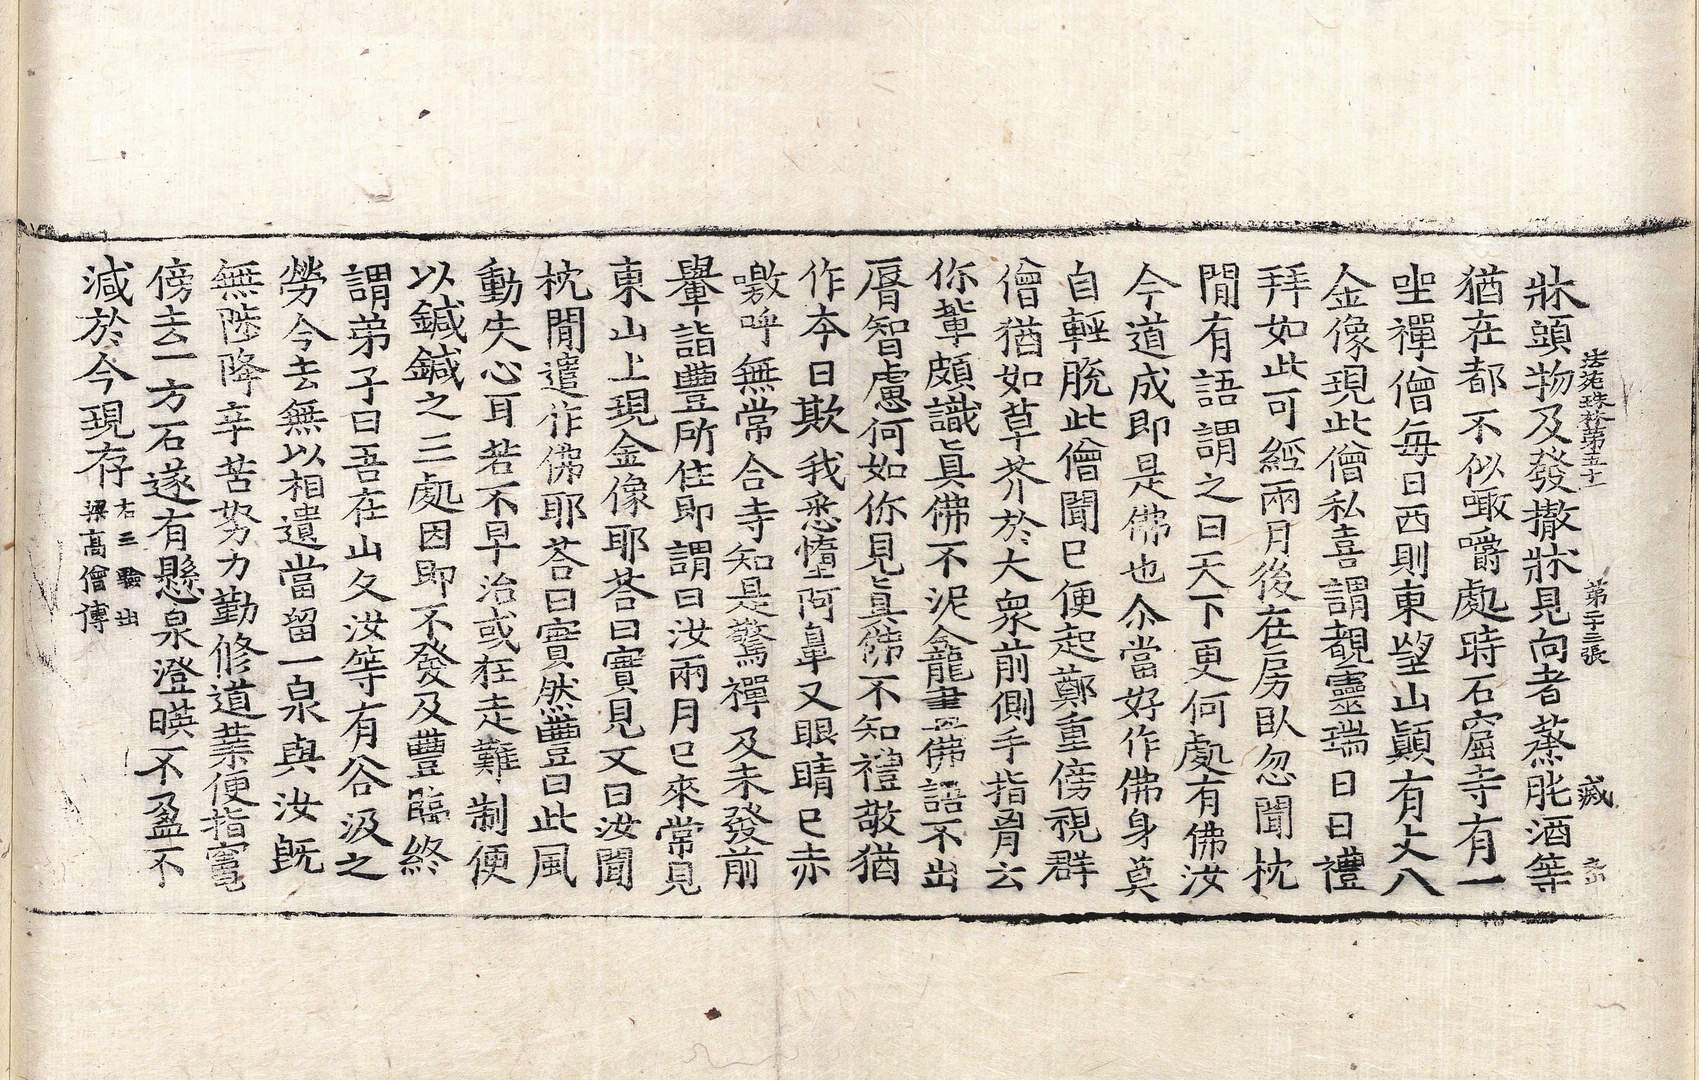 法苑珠林第五十一 第二十三張 𦵔
牀頭物及發撤牀見向者蒸㹠酒等
猶在都不似噉嚼處時石窟寺有一
坐禪僧每日西則東望山顛有丈八
金像現此僧私喜謂覩靈瑞日日禮
拜如此可經兩月後在房臥忽聞枕
閒有語謂之曰天下更何處有佛汝
今道成即是佛也尒當好作佛身莫
自輕脫此僧聞已便起鄭重傍視群
僧猶如草芥於大衆前側手指胷云
你輩頗識真佛不泥龕畫佛語不出
脣智慮何如你見真佛不知禮敬猶
作本日欺我悉墮阿鼻又眼睛已赤
噭呼無常合寺知是驚禪及未發前
轝詣豐所住即謂曰汝兩月已來常見
東山上現金像耶荅曰實見又曰汝聞
枕閒遣作佛耶荅曰實然豐曰此風
動失心耳若不早治或狂走難制便
以鍼鍼之三處因即不發及豐臨終
謂弟子曰吾在山久汝等有谷汲之
勞今去無以相遺當留一泉與汝旣
無陟降辛苦努力勤修道業便指竈
傍去一方石遂有懸泉澄映不盈不
減於今現存
右三驗出
梁高僧傳